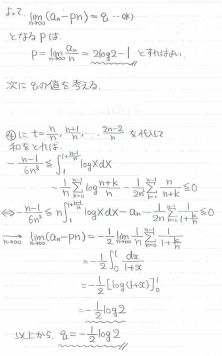 よって、lim_{n→∞}(an-pn)=q …(※)
となるpは
p=lim_{n→∞} an/n = 2log2-1 とすればよい.
次にqの値を考える.
④に t=n/n, n+1/n, …, 2n-2/n を代入して
和をとれば
-n-1/6n³ ≦ ∫_1^{1+n-1/n} logXdX
-1/n Σ_{k=1}^{n-1} log n+k/n - 1/2n² Σ_{k=1}^{n-1} n/n+k ≦0
⇔ -n-1/6n² ≦ n∫_1^{1+n-1/n} logXdX - an - 1/2n Σ_{k=1}^{n-1} 1/1+k/n ≦0
n→∞ lim_{n→∞}(an-pn)=-1/2 lim_{n→∞} 1/n Σ_{k=1}^{n-1} 1/1+k/n
=-1/2 ∫_0^1 dx/1+x
=-1/2 [log(1+x)]_0^1
=-1/2 log2
以上から, q=-1/2 log2